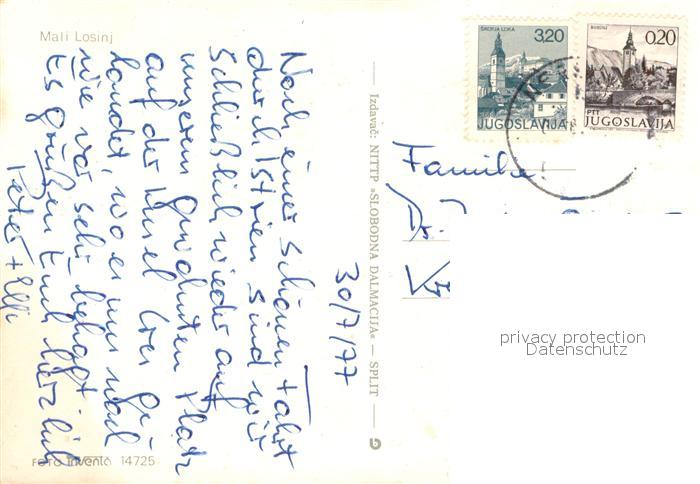 Mali Losinj
Nach einer schönen Fahrt
durch Istrien sind wir
schließlich wieder auf
unserem gewohnten Platz
auf der Insel Cres ge
landet, wo es uns nach
wie vor sehr behagt.
Es grüßen Euch herzlich
Peter + Elli
FOTO 14725
30/7/77
Izdavač: NITTP »SLOBODNA DALMACIJA« — SPLIT
ŠKOFJA LOKA
3,20
JUGOSLAVIJA
BOHINJ
0,20
PTT
JUGOSLAVIJA
Familie
Dr.
privacy protection
Datenschutz